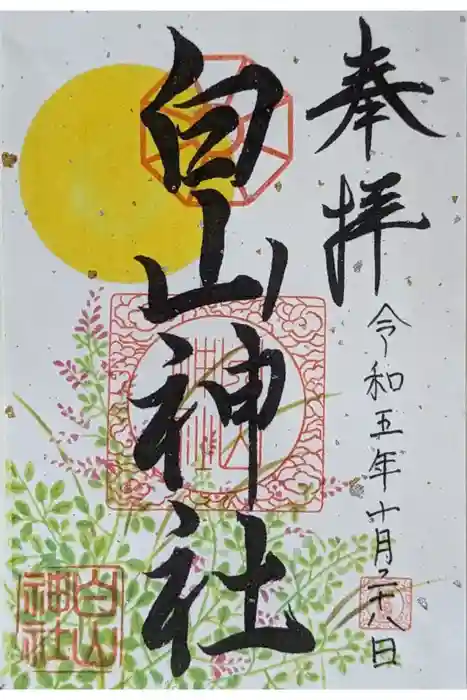 奉拝
令和五年十月二十八日
白山神社
白山
神社